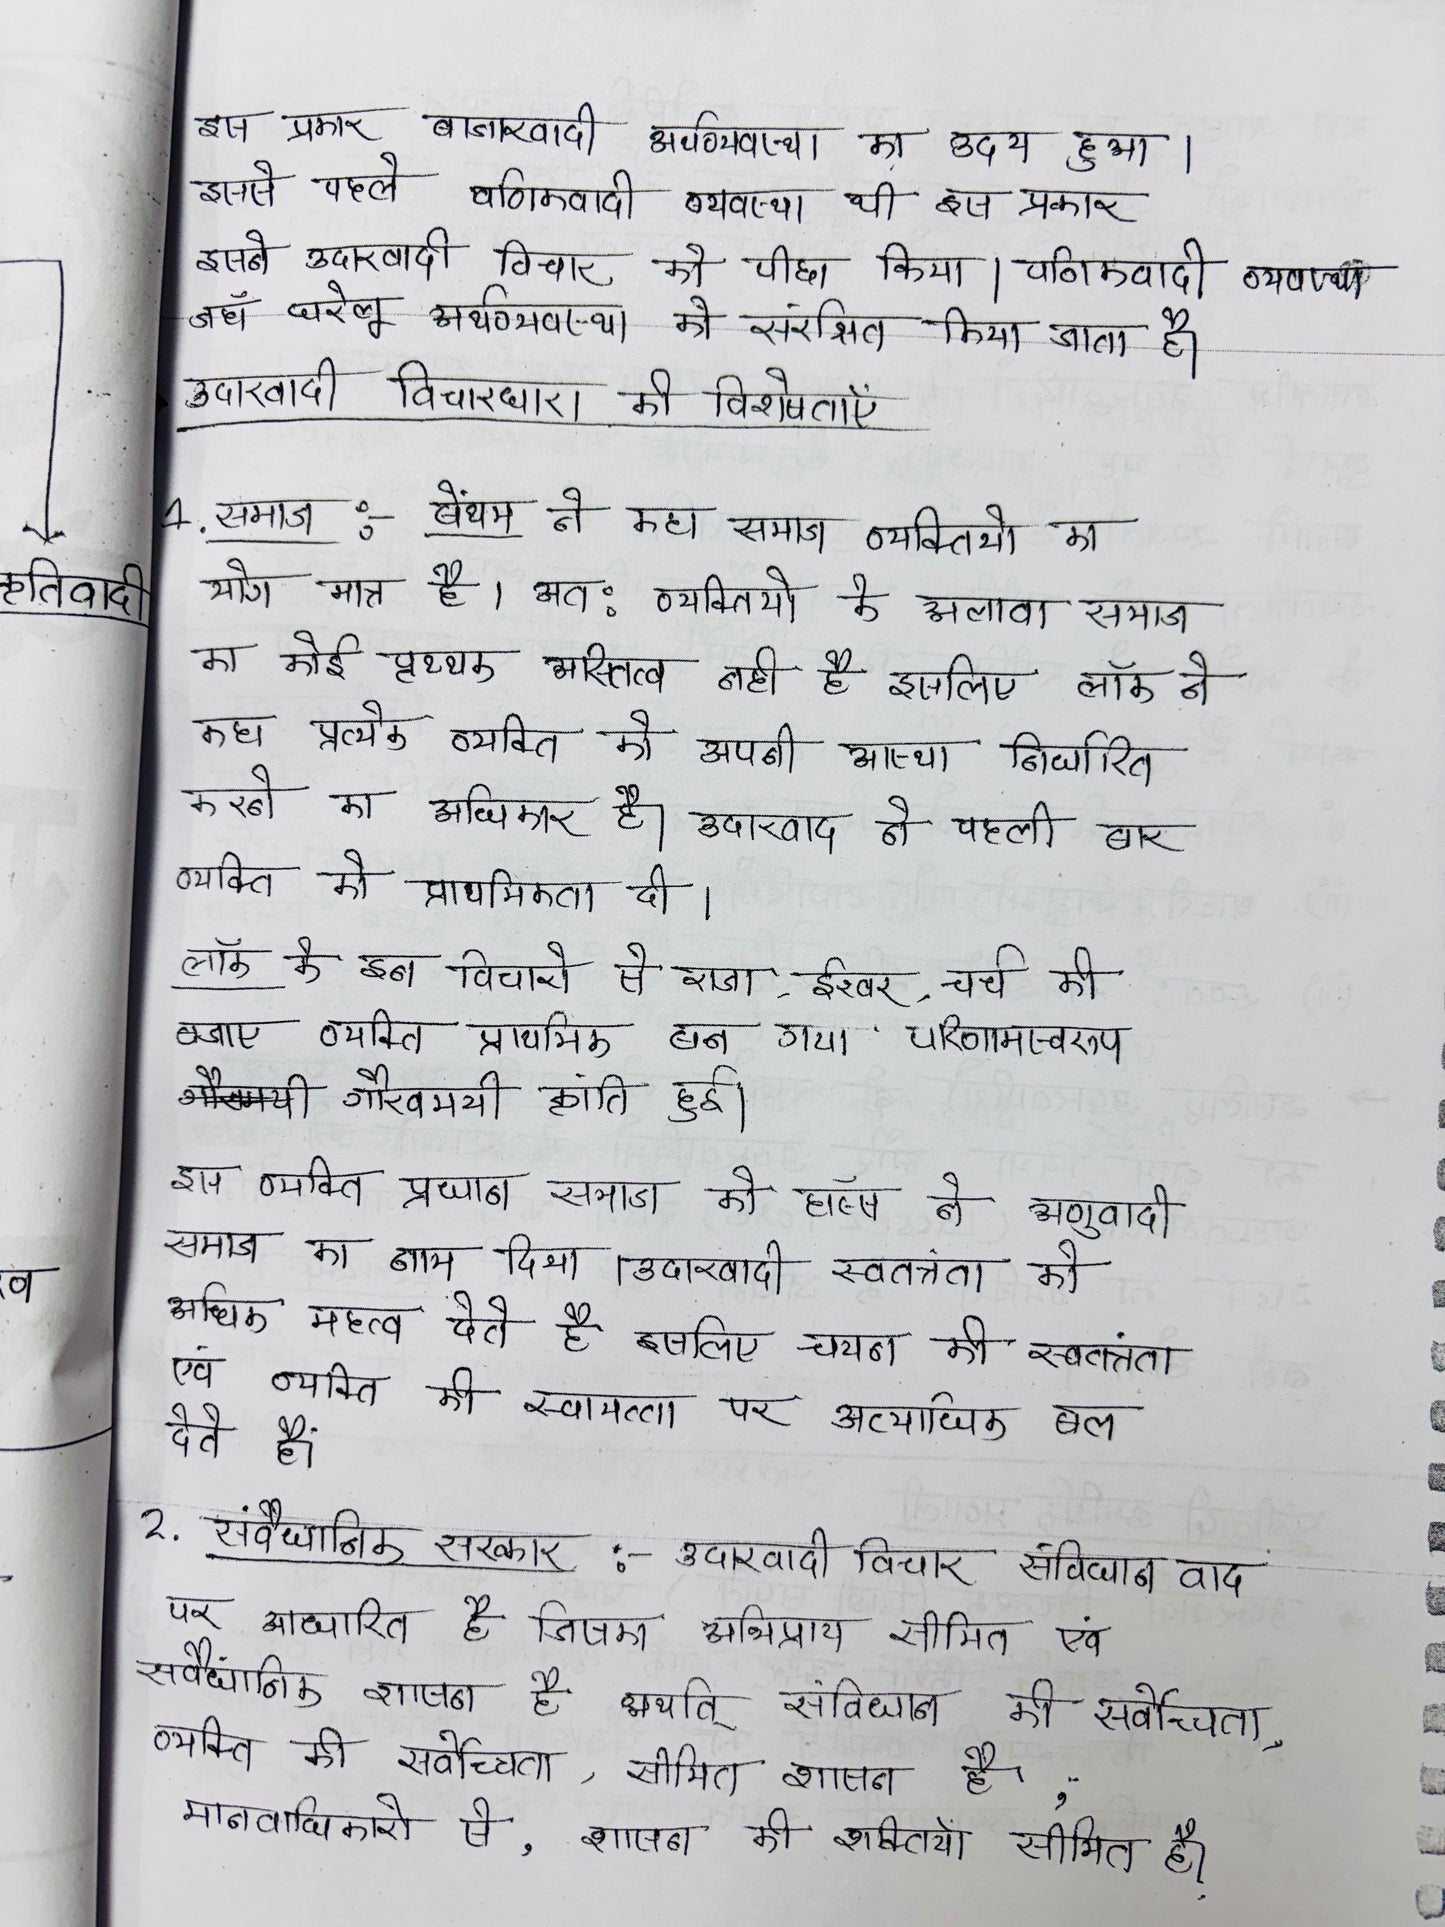 इस प्रकार बाजारवादी अर्थव्यवस्था का उदय हुआ ।
इससे पहले वणिकवादी व्यवस्था थी इस प्रकार
इसने उदारवादी विचार को पीछा किया । वणिकवादी व्यवस्था
जहाँ घरेलू अर्थव्यवस्था को संरक्षित किया जाता है।
उदारवादी विचारधारा की विशेषताएँ
1. समाज :- बेंथम ने कहा समाज व्यक्तियो का
कृतिवादी
योग मात्र है । अत: व्यक्तियो के अलावा समाज
का कोई पृथ्थक अस्तित्व नही है इसलिए लॉक ने
कहा प्रत्येक व्यक्ति को अपनी आस्था निर्धारित
करने का अधिकार है। उदारवाद ने पहली बार
व्यक्ति को प्राथमिकता दी ।
लॉक के इन विचारो से राजा, ईश्वर, चर्च की
बजाए व्यक्ति प्राथमिक बन गया परिणामस्वरूप
गौरवमयी क्रांति हुई।
इस व्यक्ति प्रधान समाज को हॉब्स ने अणुवादी
समाज का नाम दिया । उदारवादी स्वतत्रंता को
अधिक महत्व देते है इसलिए चयन की स्वतत्रंता
एवं व्यक्ति की स्वायत्ता पर अत्याधिक बल
देते हैं।
2. संवैधानिक सरकार :- उदारवादी विचार संविधान वाद
पर आधारित है जिसका अभिप्राय सीमित एवं
सवैधांनिक शासन है अर्थात् संविधान की सर्वोच्चता,
व्यक्ति की सर्वोच्चता, सीमित शासन है ;
मानवाधिकारो से, शासन की शक्तियाँ सीमित है।